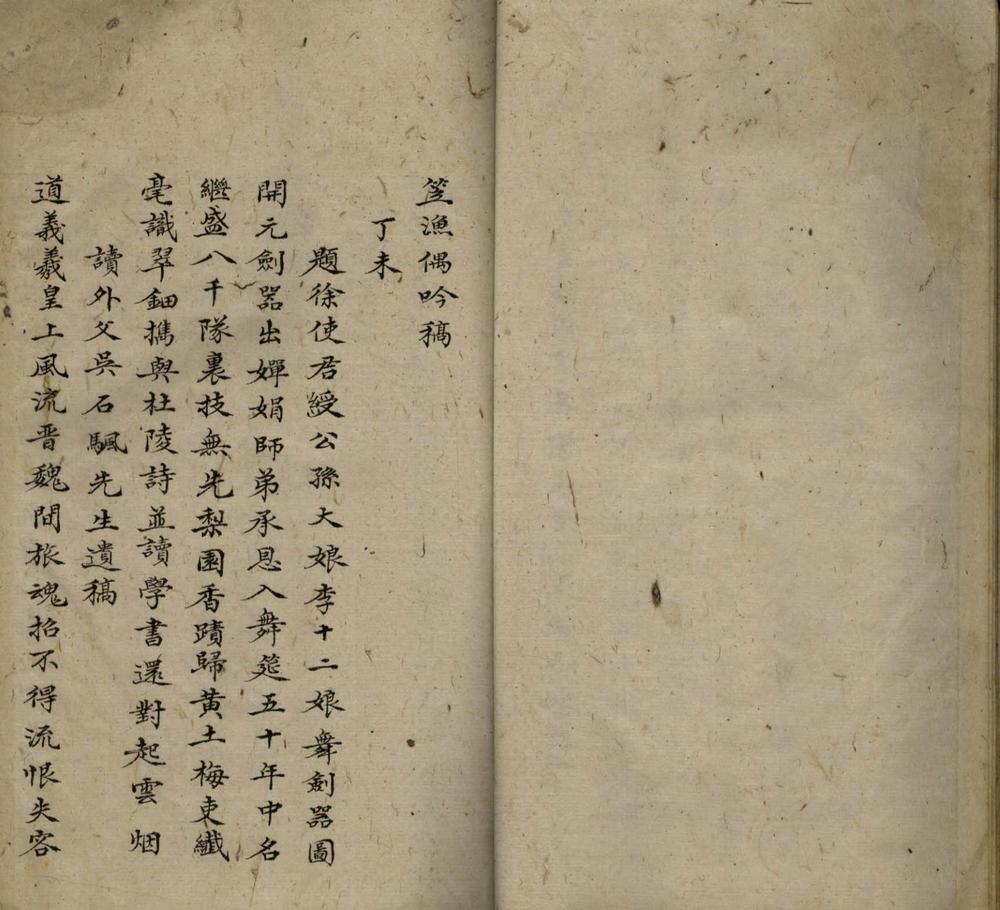 笠漁偶吟稿
丁未
題徐使君綬公孫大娘李十二娘舞劍器圖
開元劍器出嬋娟師弟承恩入舞筵五十年中名
繼盛八千隊裏技無先梨園香蹟歸黃土梅吏纖
毫識翠鈿攜與杜陵詩並讀學書還對起雲烟
讀外父吳石颿先生遺稿
道義羲皇上風流晋魏間旅魂招不得流恨失容